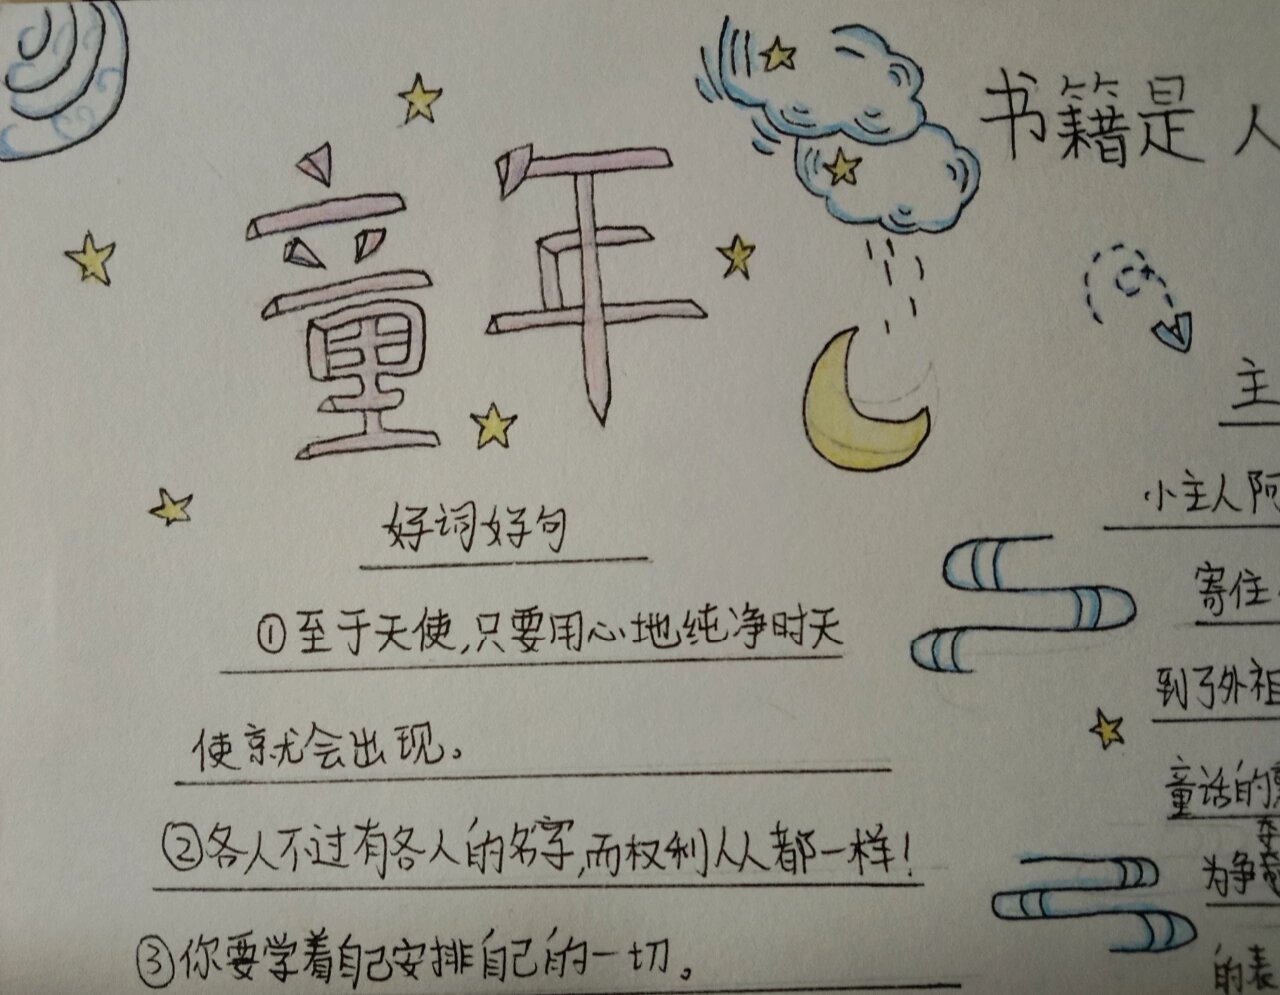 童年
书籍是人
好词好句
①至于天使,只要用心地纯净时天
使就会出现。
②各人不过有各人的名字,而权利人人都一样!
③你要学着自己安排自己的一切。
主
小主人阿
寄住
到了外祖
童话的
为争
的表